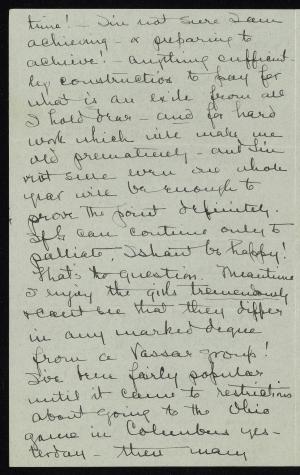 time! - I'm not sure I am
achieving - or preparing to
achieve! - anything sufficient
ly constructive to pay for
what is an exile from all
I hold dear - and for hard
work which will make me
old prematurely - and I'm
not sure even one whole
year will be enough to
prove the point definitely.
If I can continue only to
palliate, I shan't be happy!
That's the question. Meantime
I enjoy the girls tremendously
& can't see that they differ
in any marked degree
from a Vassar group!
I've been fairly popular
until it came to restrictions
about going to the Ohio
game in Columbus yes-
terday - then many